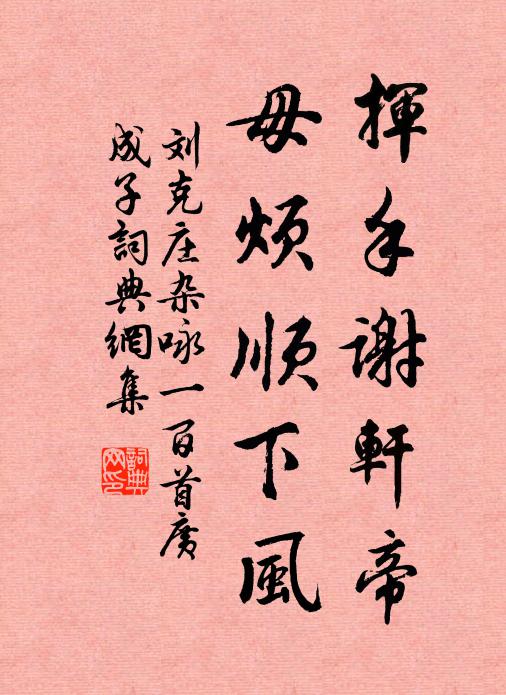 揮手謝軒帝
毋煩順下風
刘克庄杂咏一百首廣
成子詞典網集
詞典网印